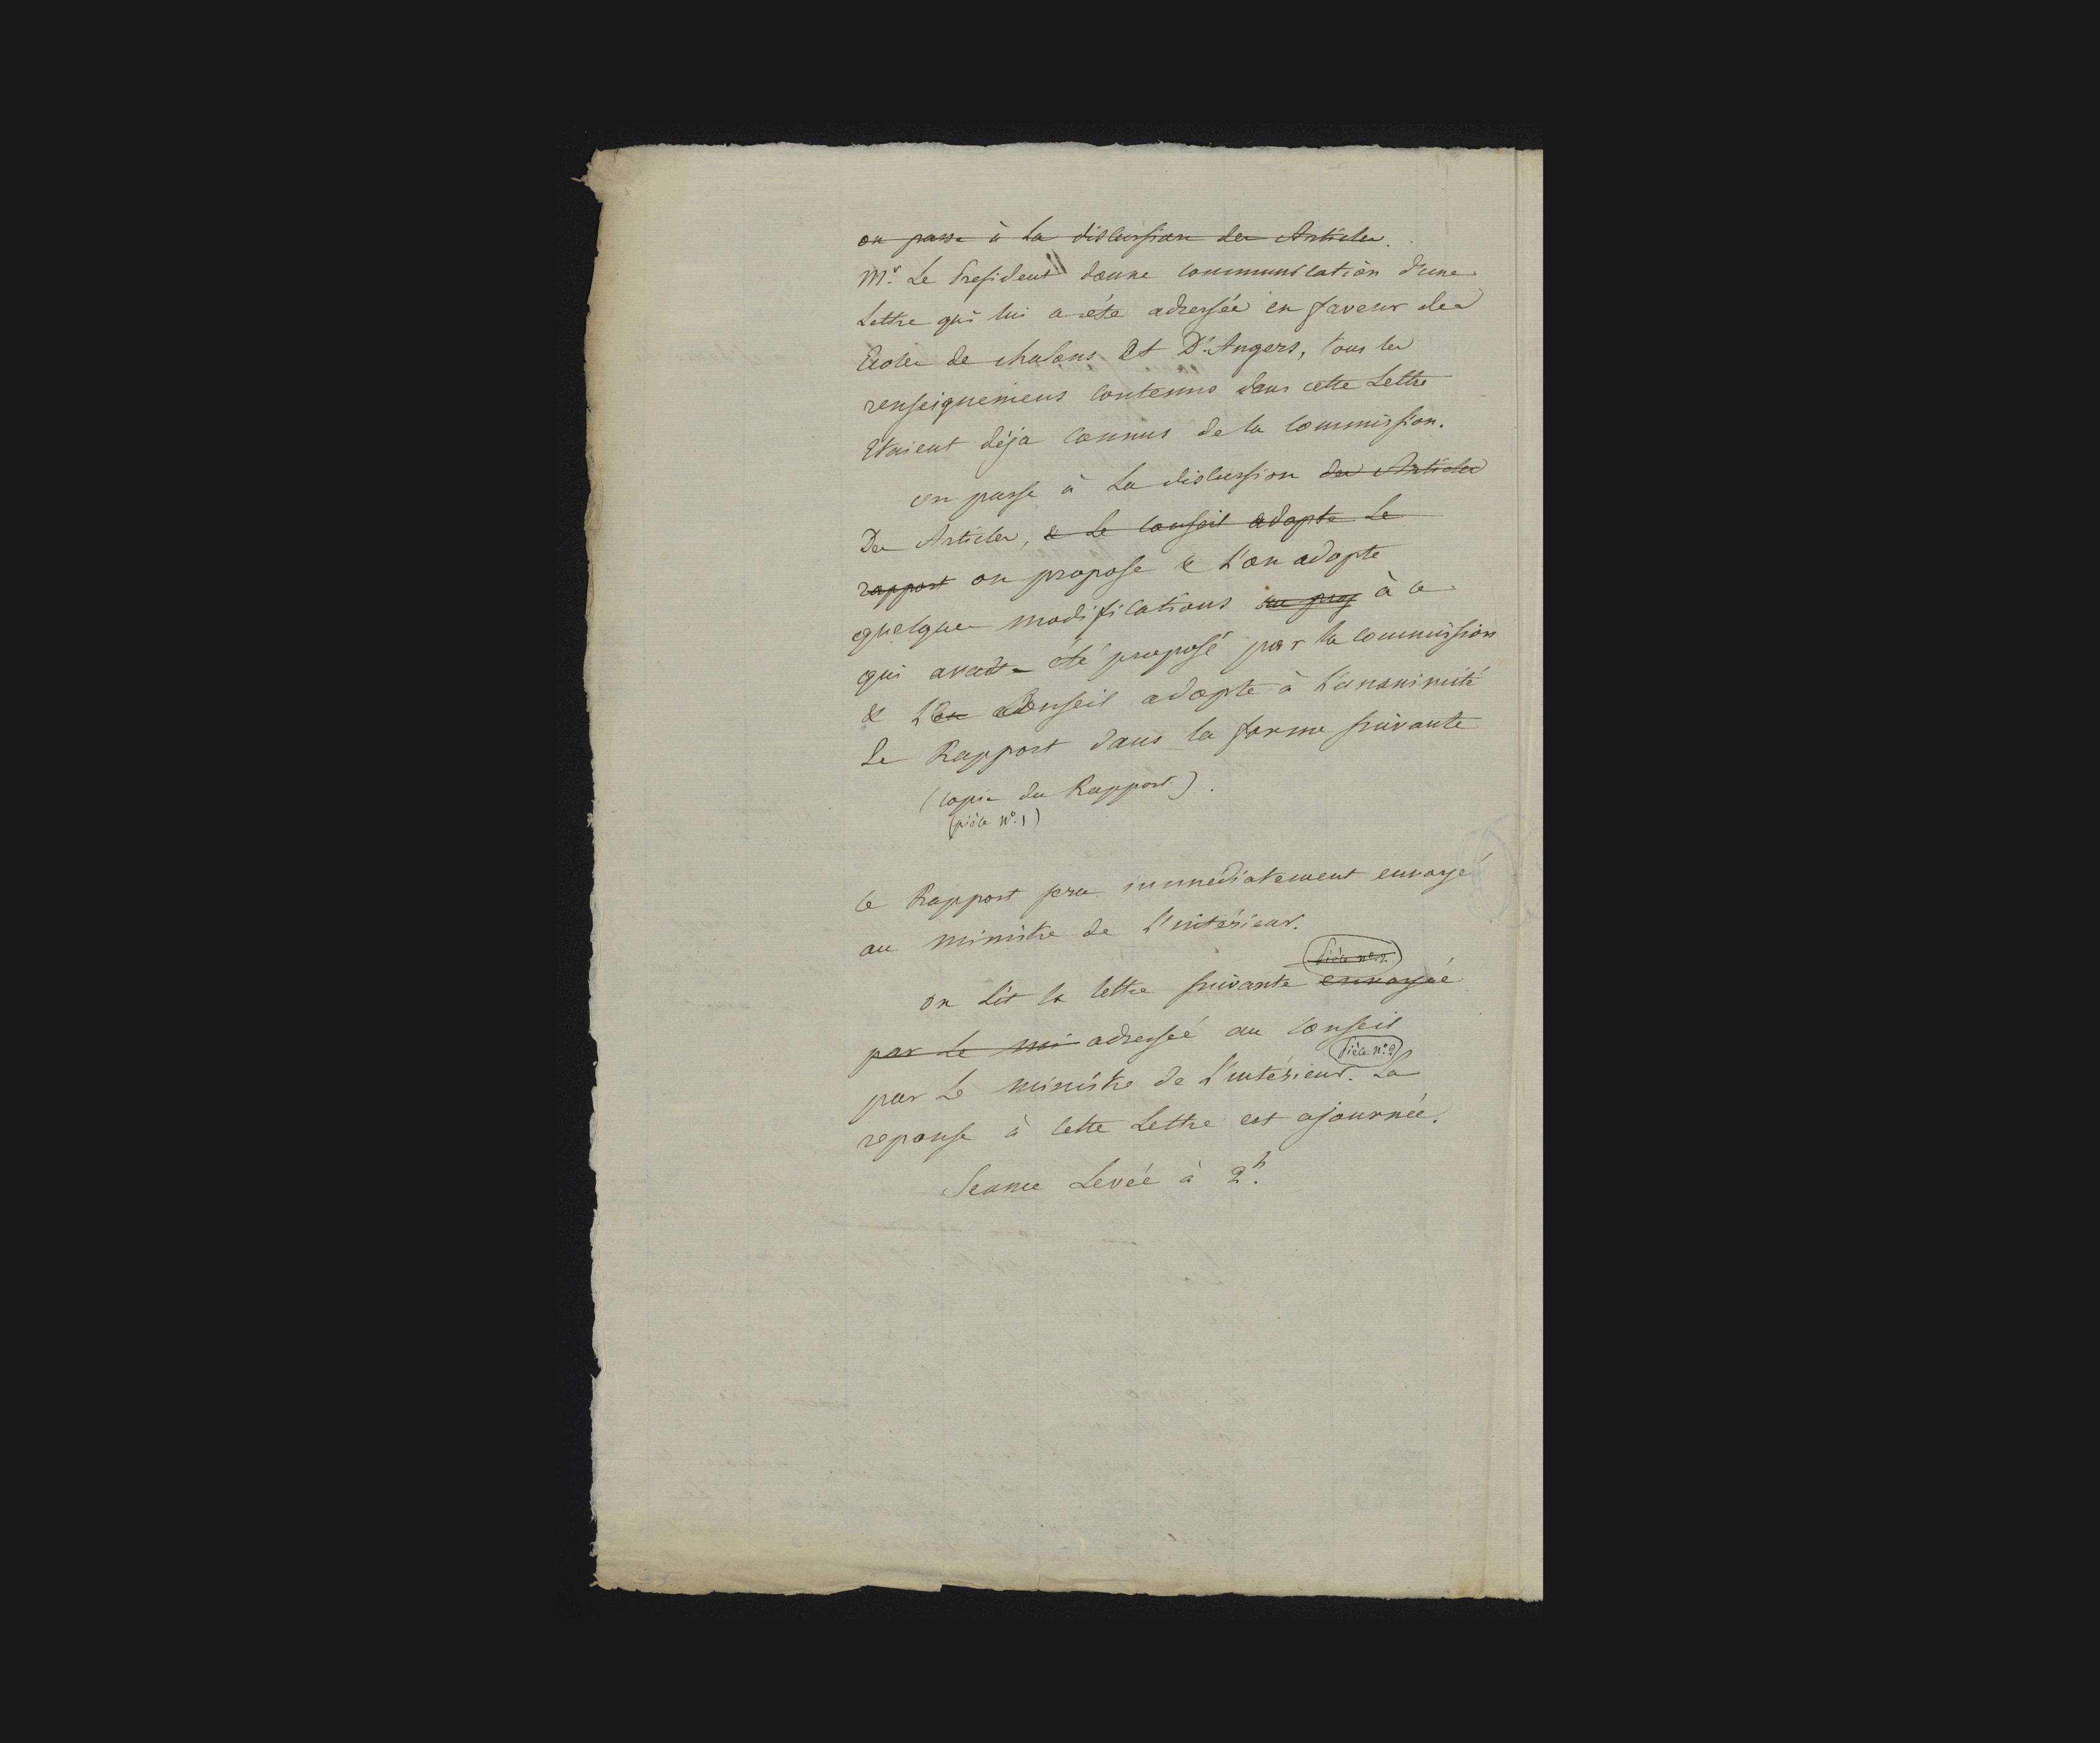 on passe à La discussion des Articles.
Mr. Le President donne communication d'une
Lettre qui lui a été adressée en faveur des
Ecoles de chalons Et D'Angers, tous les
renseignemens contenus dans cette Lettre
Etaient déja connus de la Commission.
on passe à La discussion des Articles
Des Articles, & Le Conseil adopte Le
rapport on propose & L'on adopte
quelques modifications au proj à ce
qui avait été proposé par la commission
& L'on Conseil adopte à L'unanimité
Le Rapport dans la forme suivante
(Copie du Rapport).
(pièce N°. 1)
ce Rapport sera immédiatement envoyé
au ministre de L'intérieur.
Pièce N°. 2
on Lit la lettre suivante envoyée
par Le mi adressée au Conseil
Pièce N°. 2
par Le ministre de L'intérieur. La
reponse à cette Lettre est ajournée.
Seance Levée à 2h.